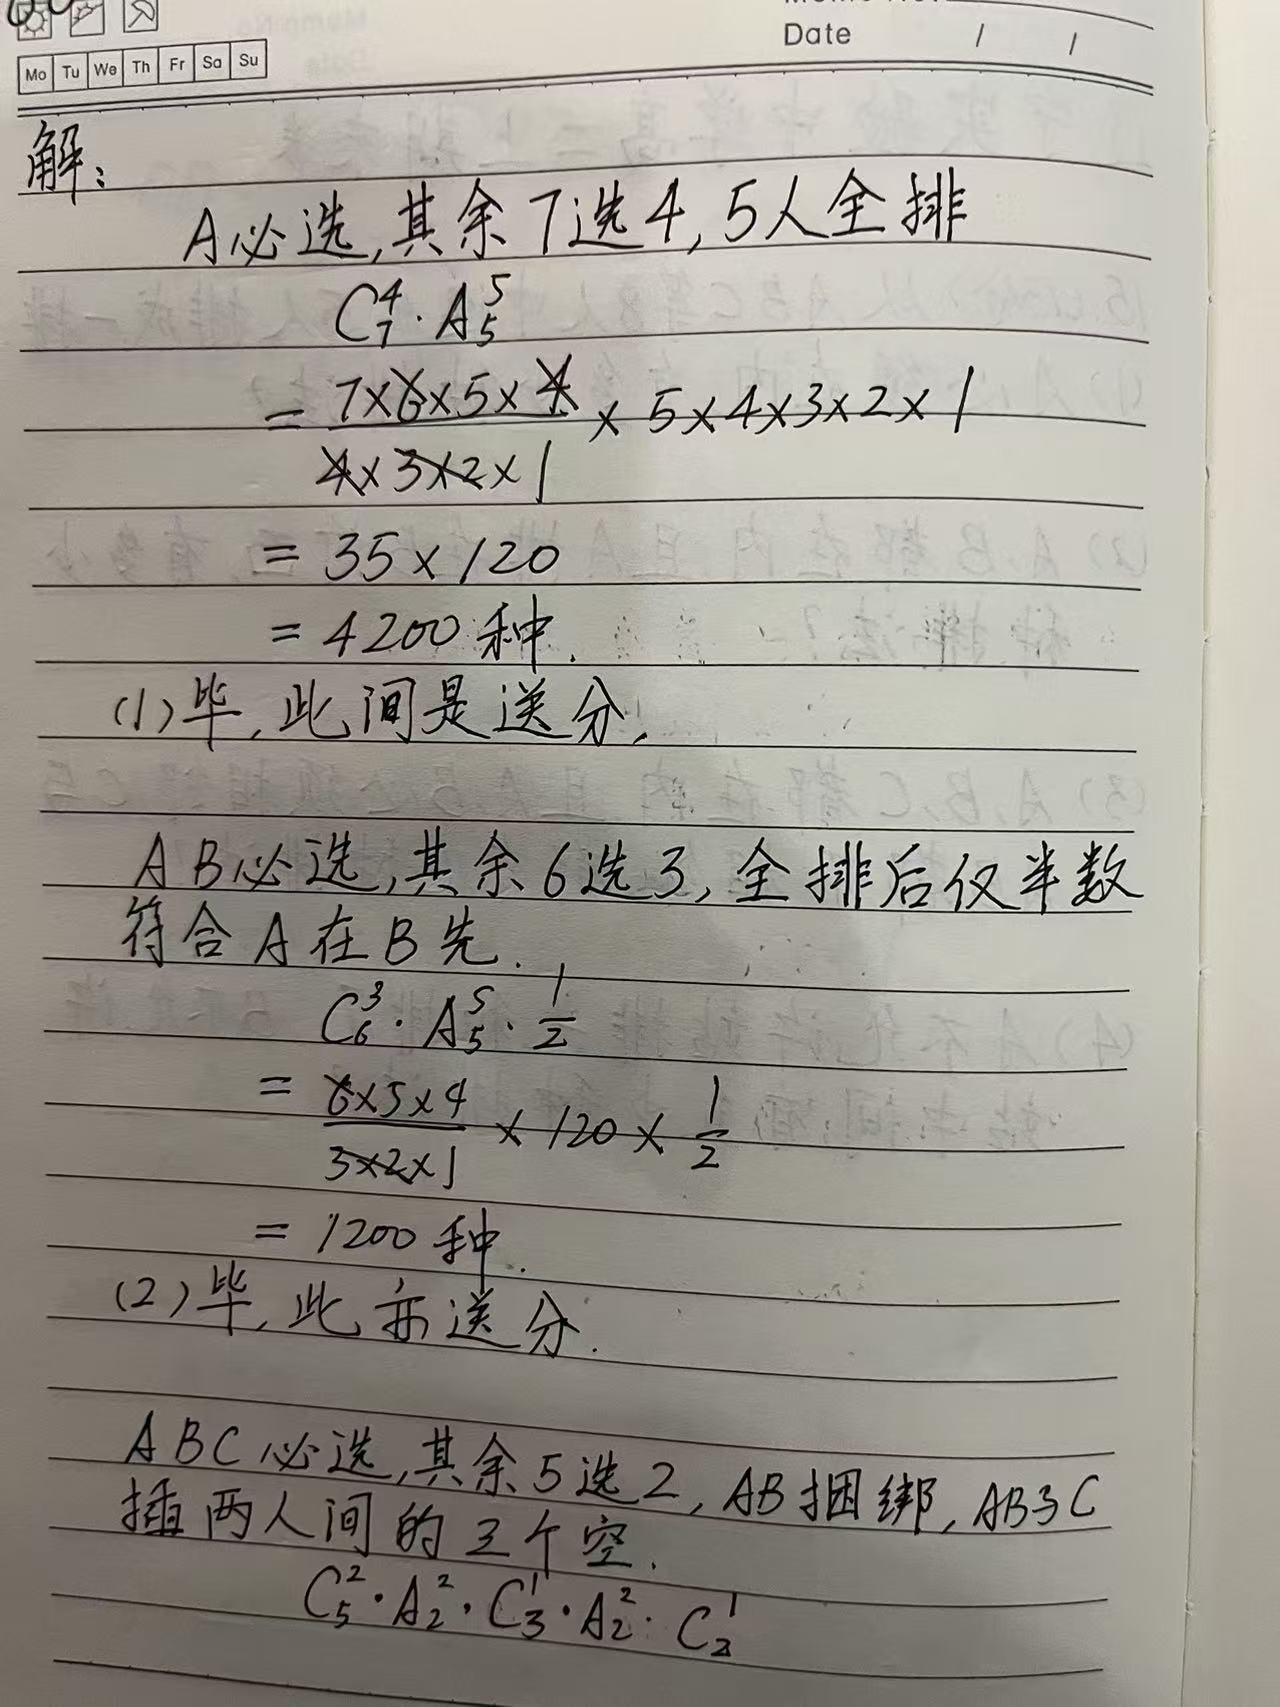 Date / /
Mo Tu We Th Fr Sa Su
解:
A必选,其余7选4,5人全排
C₇⁴·A₅⁵
= 7×6×5×4 / 4×3×2×1 × 5×4×3×2×1
= 35×120
= 4200种.
(1)毕,此间是送分.
AB必选,其余6选3,全排后仅半数
符合A在B先.
C₆³·A₅⁵·1/2
= 6×5×4 / 3×2×1 × 120 × 1/2
= 1200种.
(2)毕,此亦送分.
ABC必选,其余5选2,AB捆绑,AB与C
插两人间的三个空.
C₅²·A₂²·C₃¹·A₂²·C₂¹